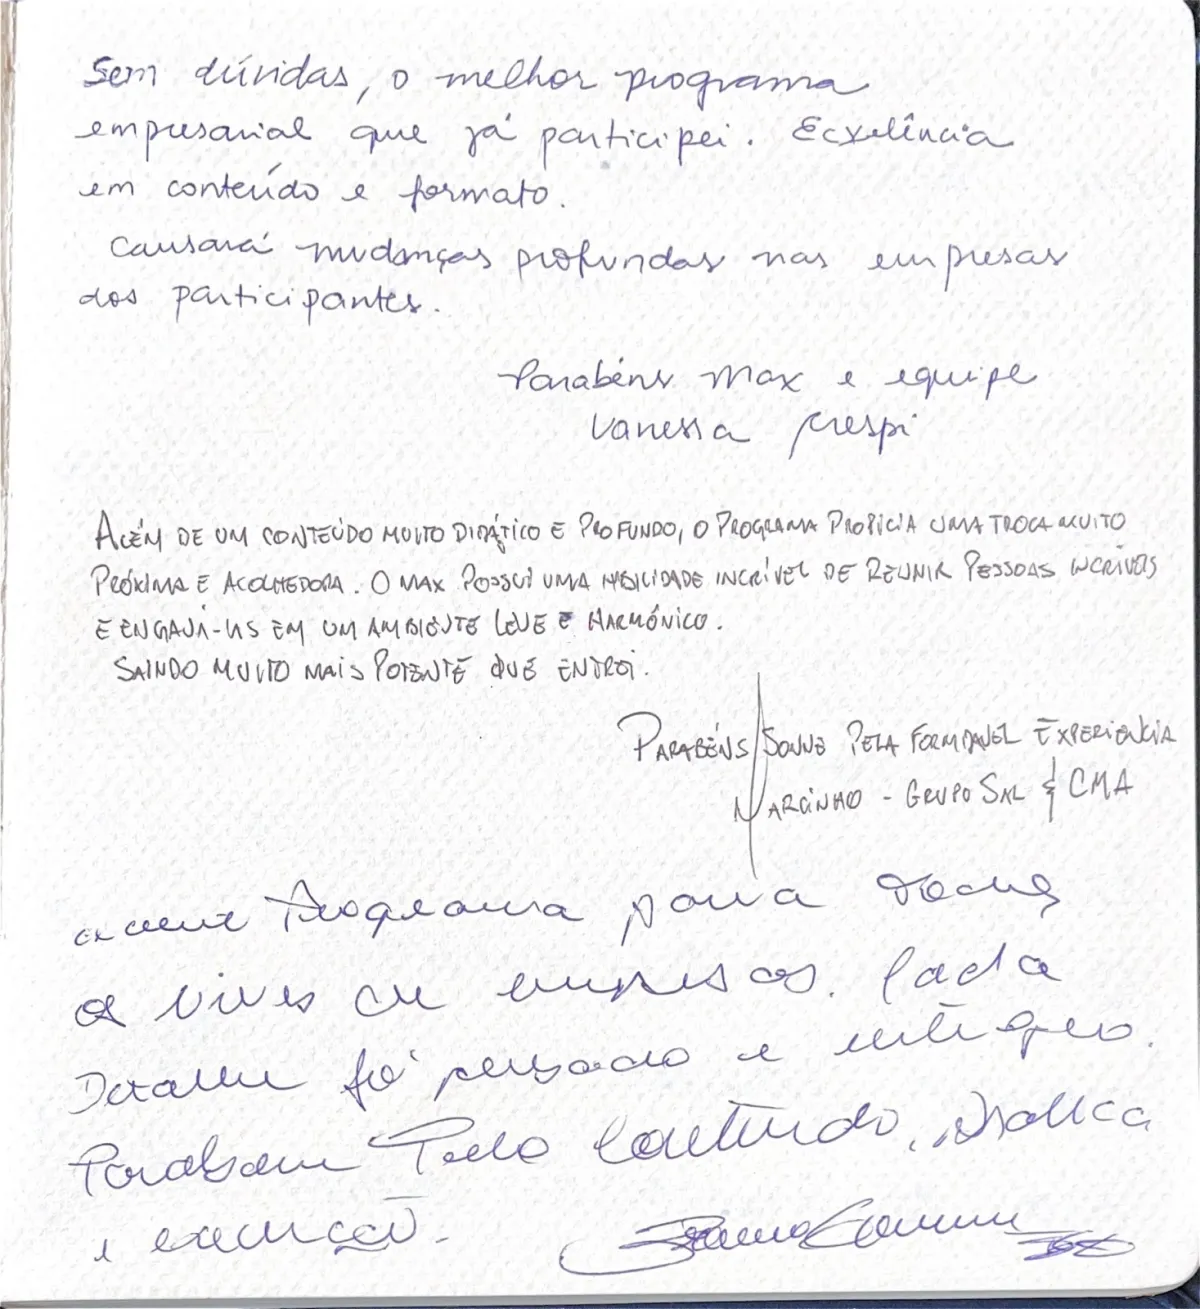 Sem dúvidas, o melhor programa
empresarial que já participei. Ecxelência
em conteúdo e formato.
Causará mudanças profundas nas empresas
dos participantes.
Parabéns Max e equipe
Vanessa Crespi
ALÉM DE UM CONTEÚDO MUITO DIDÁTICO E PROFUNDO, O PROGRAMA PROPICIA UMA TROCA MUITO
PRÓXIMA E ACOLHEDORA. O MAX POSSUI UMA HABILIDADE INCRÍVEL DE REUNIR PESSOAS INCRÍVEIS
E ENGAJÁ-LAS EM UM AMBIENTE LEVE E HARMÓNICO.
SAINDO MUITO MAIS POTENTE QUE ENTREI.
PARABÉNS SONNE PELA FORMIDAVEL EXPERIENCIA
MARCINHO - GRUPO SAL & CMA
Programa para
empresas. Cada
Detalhe foi pensado e entregue.
Parabens Pelo Conteúdo,
e execução.